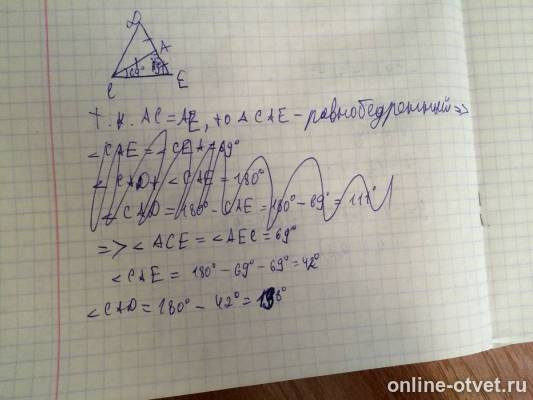 D
A
69°
C
E
т.к. AC=AE, то ΔCAE-равнобедренный =>
<CAE = <CEA = 69°
<CAD + <CAE = 180°
<CAD = 180° - CAE = 180° - 69° = 111°
=> <ACE = <AEC = 69°
<CAE = 180° - 69° - 69° = 42°
<CAD = 180° - 42° = 138°
online-otvet.ru